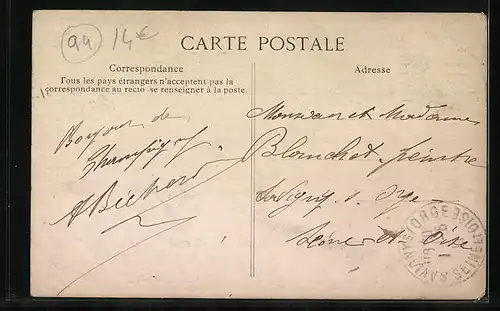 94 14€
CARTE POSTALE
Correspondance
Tous les pays étrangers n'acceptent pas la
correspondance au recto (se renseigner à la poste.
Adresse
Bonjour de
Champigny
A Béchard
Monsieur et Madame
Blanchet, peintre
Savigny s. Orge
Seine et Oise
SAVIGNY-S-ORGE
SEINE-ET-OISE